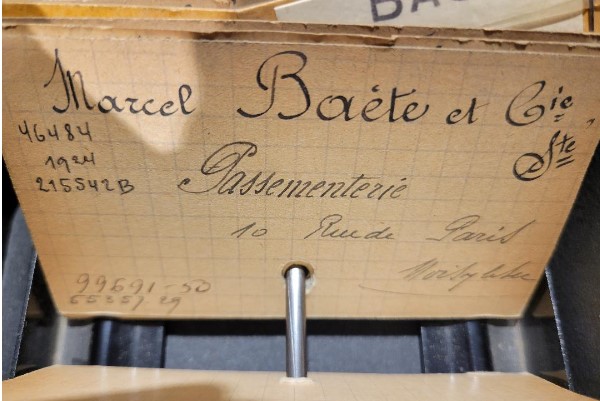 BA
Marcel Baëte et Cie
Ste
46484
1924
215542B
Passementerie
10 Rue de Paris
Noisy le Sec
99691-30
55357 29